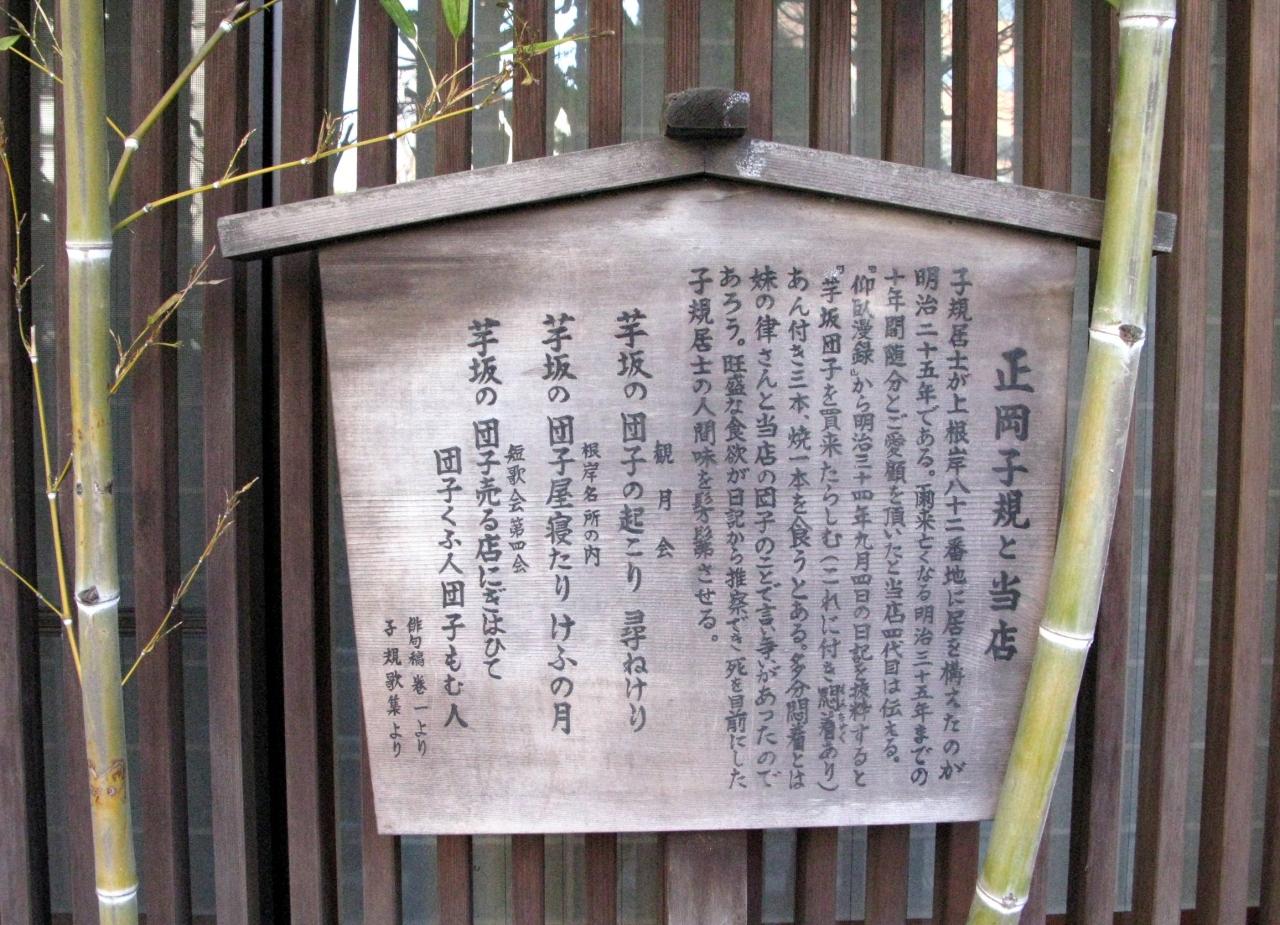 正岡子規と当店
子規居士が上根岸八十二番地に居を構えたのが
明治二十五年である。爾来亡くなる明治三十五年までの
十年間随分とご愛顧を頂いたと当店四代目は伝える。
『仰臥漫録』から明治三十四年九月四日の日記を抜粋すると
『芋坂団子を買来たらしむ(これに付き悶着あり)
あん付き三本、焼一本を食うとある。多分悶着とは
妹の律さんと当店の団子のことで言い争いがあったので
あろう。旺盛な食欲が日記から推察でき死を目前にした
子規居士の人間味を髣髴させる。
観月会
芋坂の団子の起こり尋ねけり
根岸名所の内
芋坂の団子屋寝たりけふの月
短歌会第四会
芋坂の団子売る店にぎはひて
団子くふ人団子もむ人
俳句稿巻一より
子規歌集より